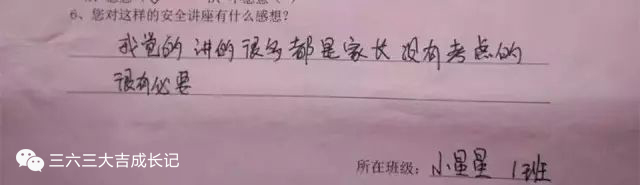 6、您对这样的安全讲座有什么感想?
我觉的讲的很多都是家长没有考点的
很有必要
三六三大吉成长记
所在班级：小星星 1班